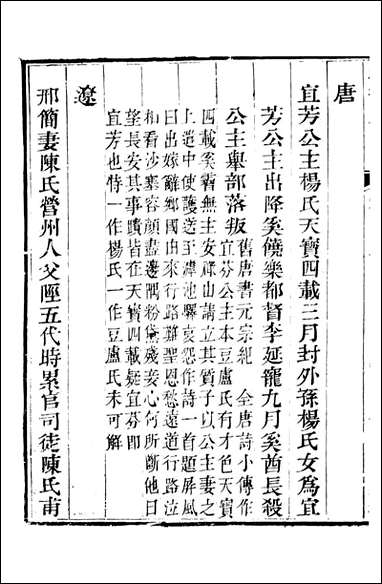 唐
宜芳公主楊氏天寶四載三月封外孫楊氏女為宜
芳公主出降奚饒樂都督李延寵九月奚酋長殺
公主舉部落叛舊唐書元宗紀　全唐詩小傳作
宜芬公主本豆盧氏有才色天寶
四載奚霫無主安祿山請立其質子以公主妻之
上遣中使護送至虛池驛哀怨作詩一首題屏風
曰出嫁辭鄉國由來行路難聖恩愁遠道行路泣
相看沙塞容顏盡邊隅粉黛殘妾心何所斷他日
望長安其事蹟皆在天寶四載疑宜芬即
宜芳也特一作楊氏一作豆盧氏未可解
遼
邢簡妻陳氏營州人父陘五代時累官司徒陳氏甫